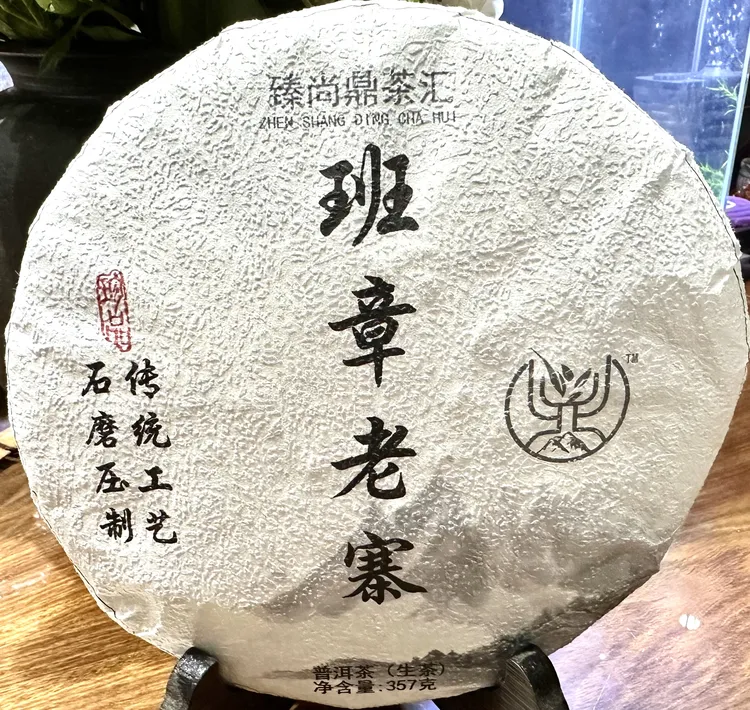 臻尚鼎茶汇
ZHEN SHANG DING CHA HUI
班章老寨
传统工艺
石磨压制
TM
普洱茶（生茶）
净含量:357克